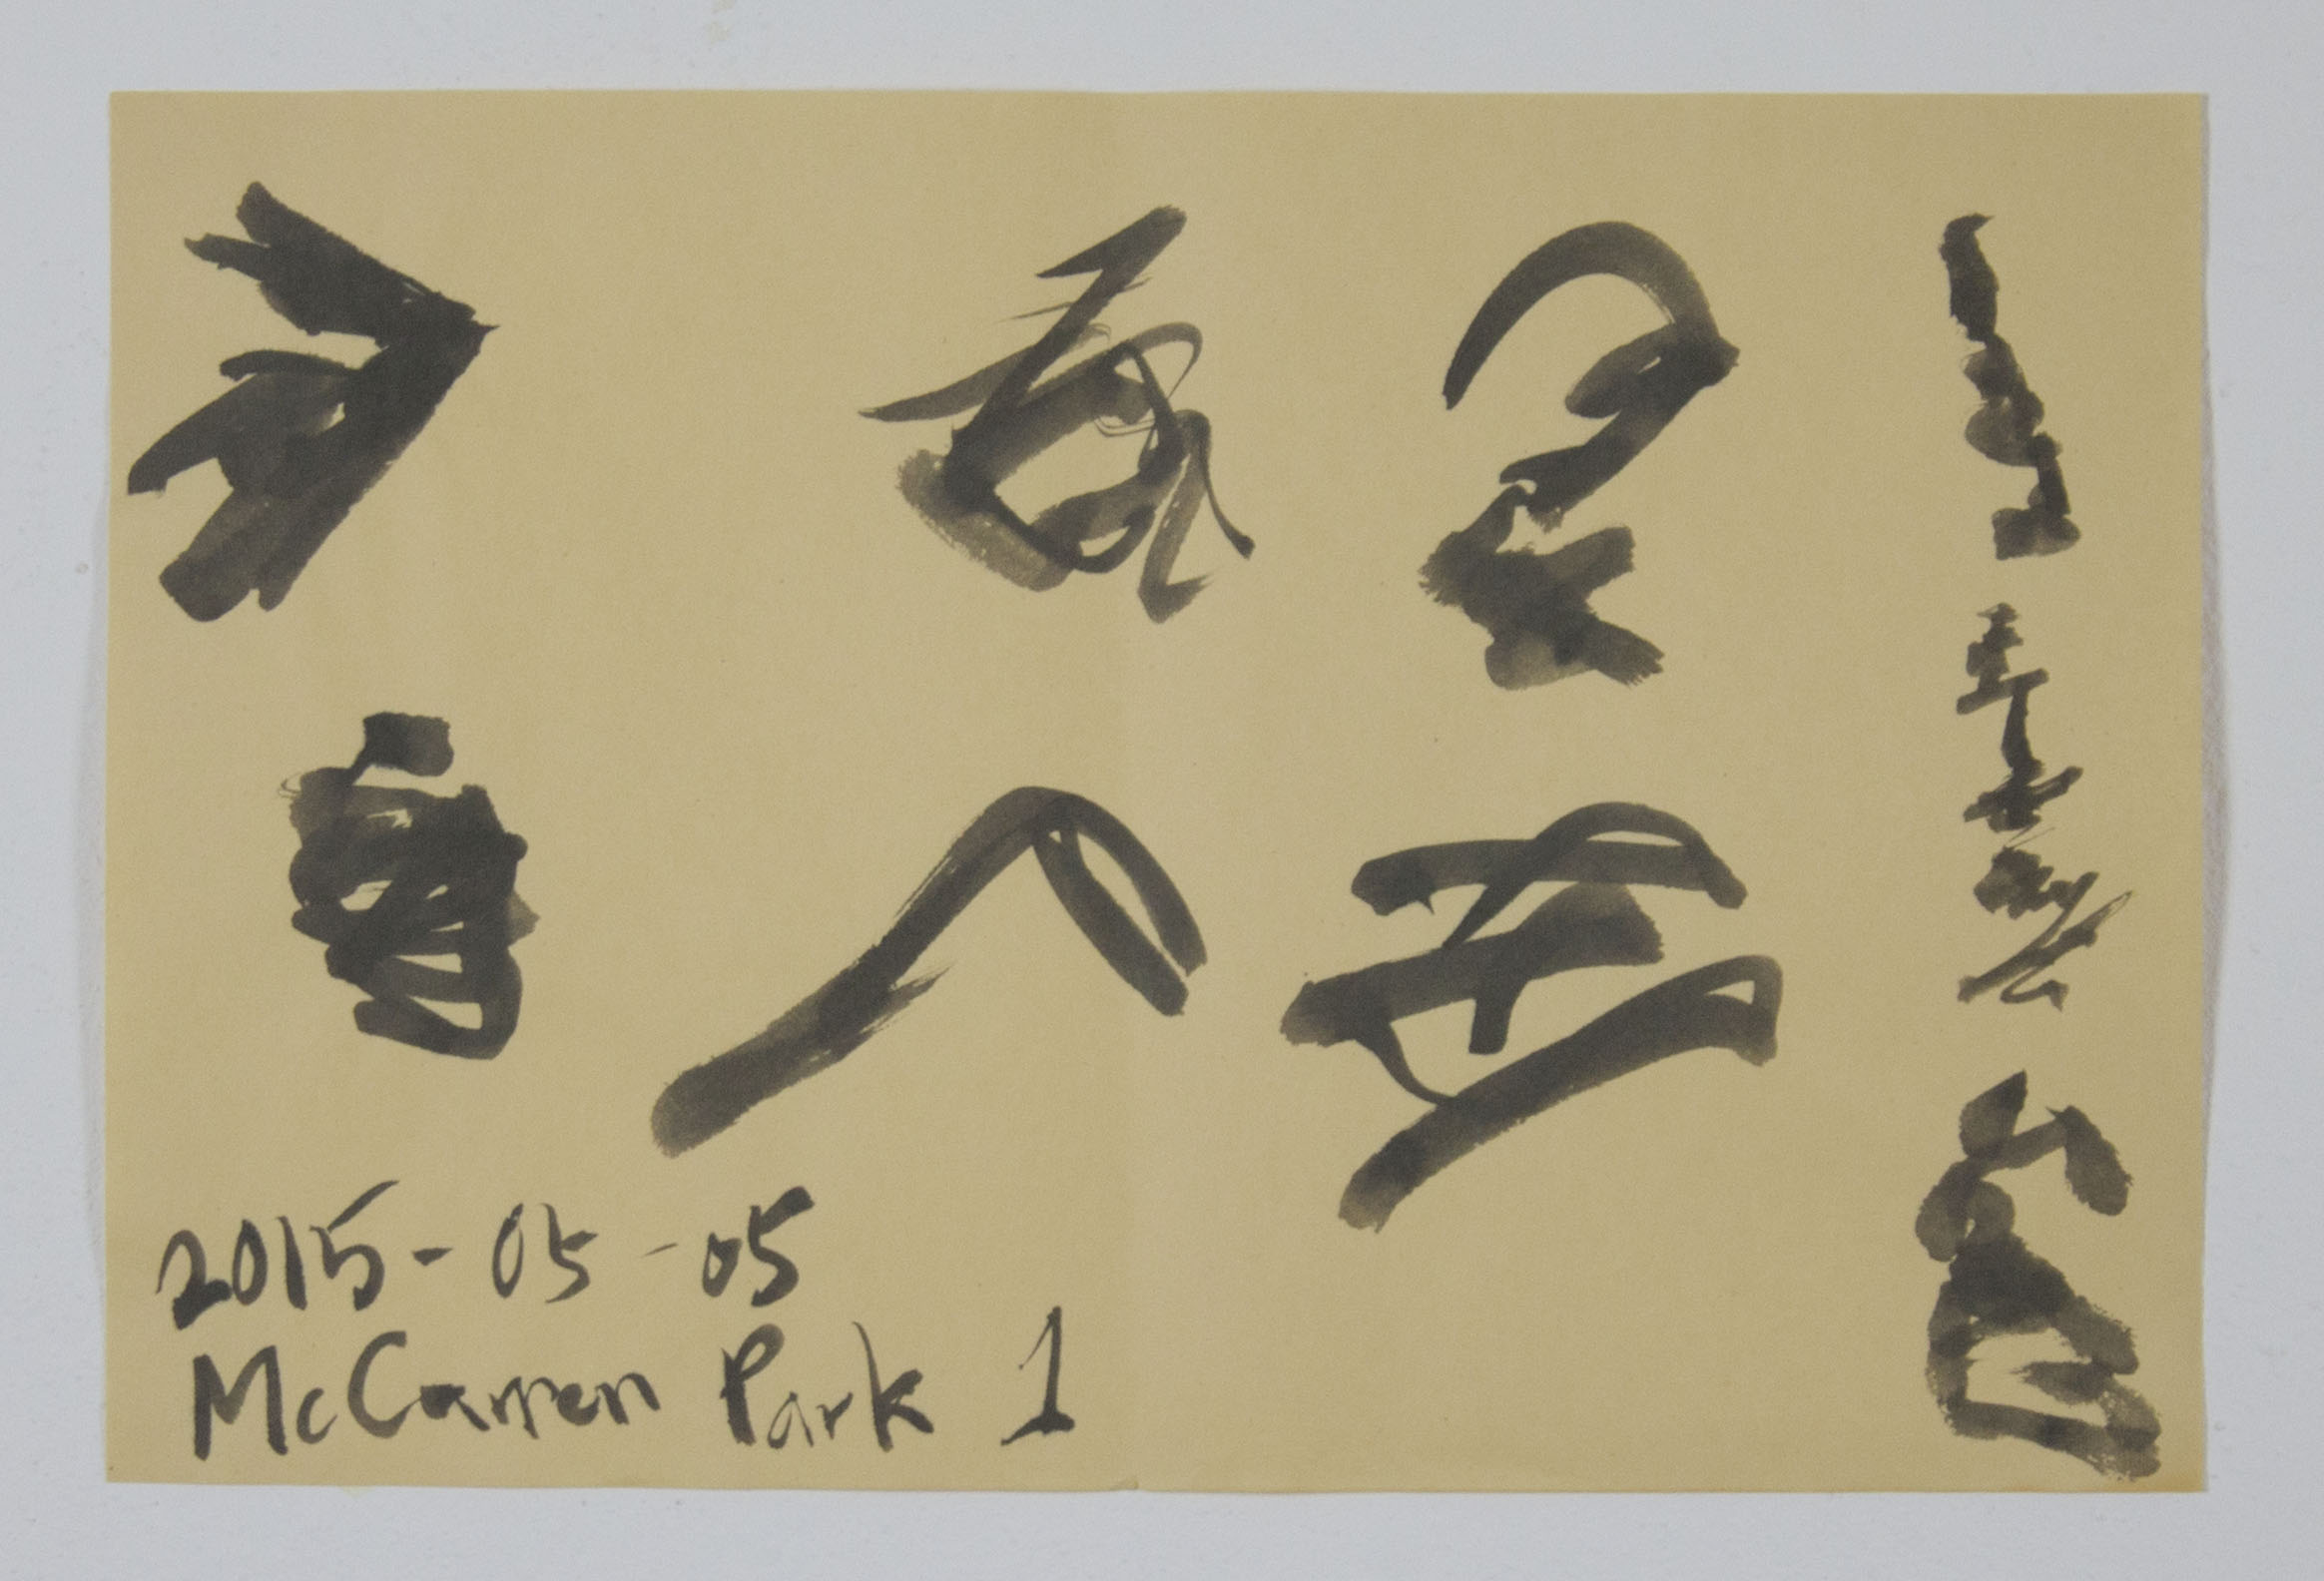 2015-05-05
McCarren Park 1